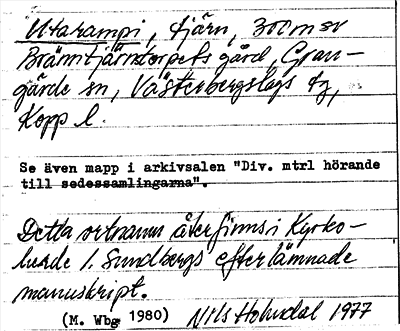 Utarampi, tjärn, 300 m sv
Bränntjärnstorpets gård, Gran-
gärde sn, Västerbergslags tg,
Kopp l.
Se även mapp i arkivsalen "Div. mtrl hörande
till sedessamlingarna".
Detta ortnamn återfinns i Kyrko-
herde I. Sundbergs efterlämnade
manuskript.
(M. Wbg 1980) Nils Holmdal 1977